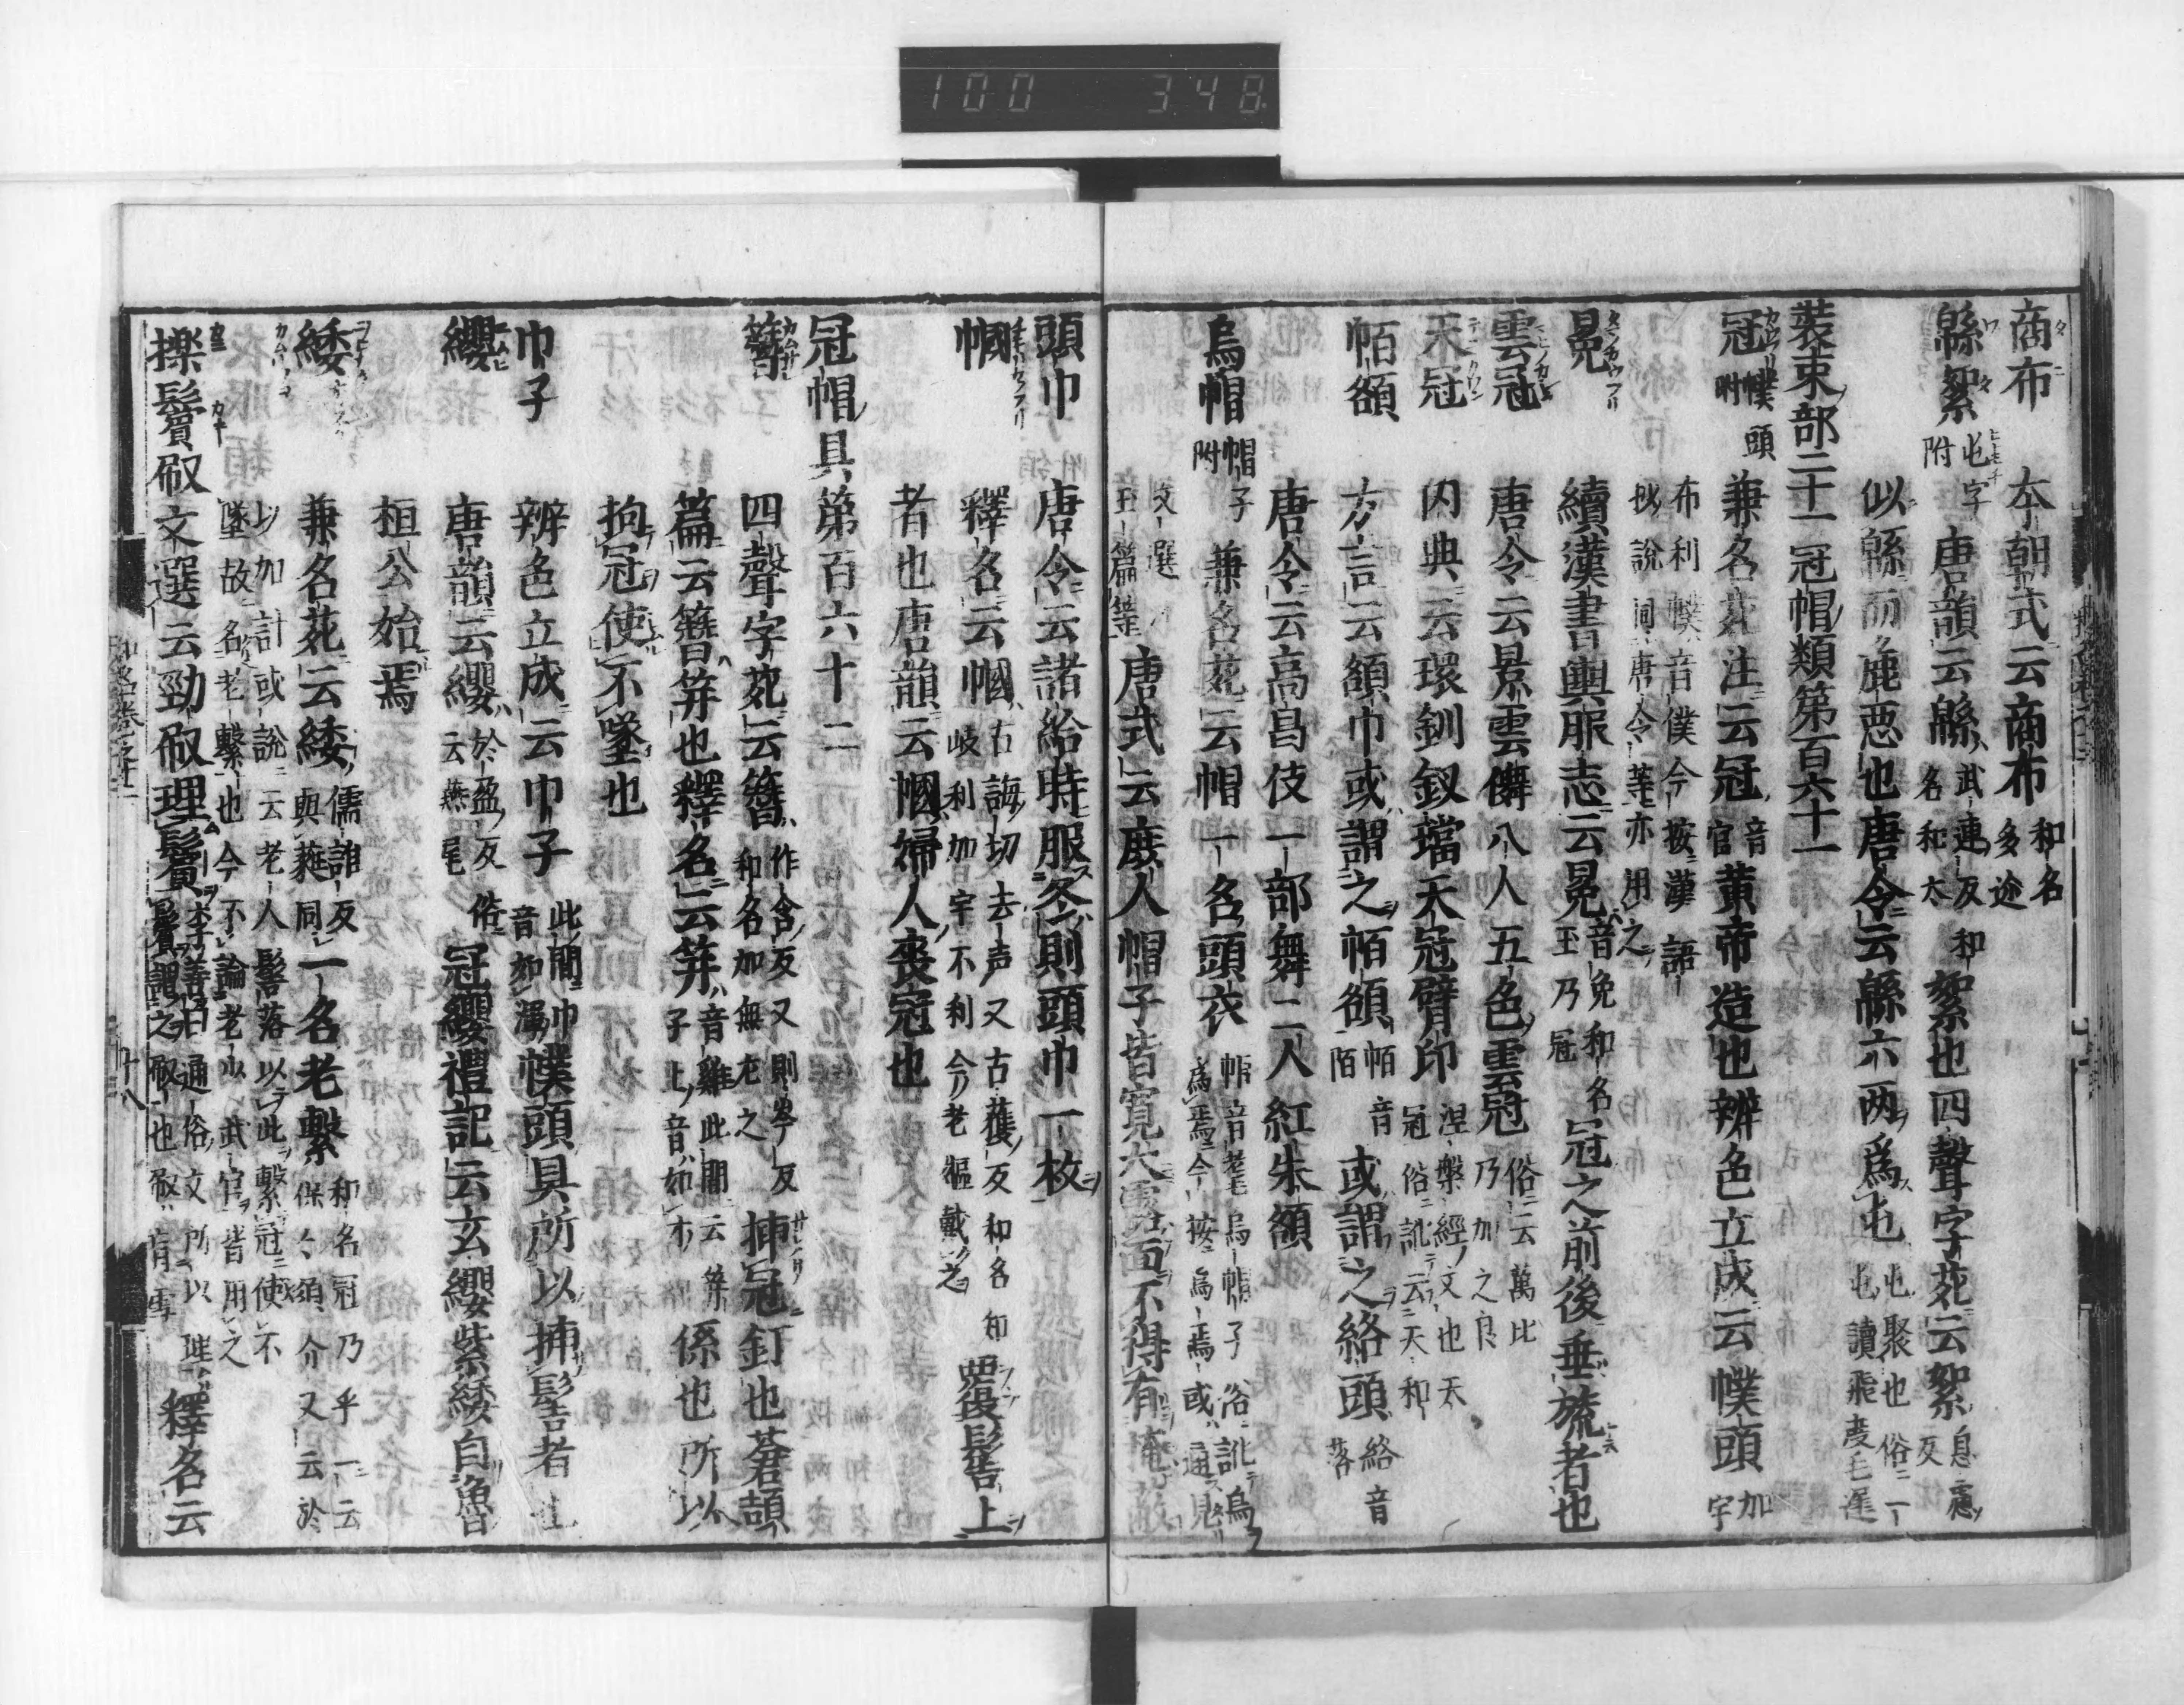 100 348
商布 本朝式云商布 和名多迩
緜絮 屯字附 唐韻云緜 武連反和名和太 絮也四聲字苑云絮 息慮反
似緜而麁悪也唐令云緜六两爲屯 屯聚也俗一
裝束部二十一冠帽類第百六十一
冠 幞頭附 兼名苑注云冠 音官 黄帝造也辨色立成云幞頭 加宇
布利幞音僕今按漢語
抄說同唐令等亦用之
冕 續漢書輿服志云冕 音免和名玉乃冠 冠之前後垂旒者也
雲冠 唐令云景雲儛八人五色雲冠
天冠 内典云環釧釵璫天冠臂印 涅槃經文也天冠俗訛云天和
帕額 方言云額巾或謂之帕額 帕音陌 或謂之絡頭 絡音落
唐令云高昌伎一部舞二人紅朱額
烏帽 帽子附 兼名苑云帽一名頭衣 帽音耄烏帽子俗訛烏爲焉今按烏焉或通見
文選
玉篇等 唐式云庶人帽子皆寛大露面不得有
頭巾 唐令云諸給時服冬則頭巾一枚
幗 釋名云幗 覆髻上
者也唐韻云幗婦人喪冠也
冠帽具第百六十二
簪 四聲字苑云簪 作含反又則岑反和名加無左之 挿冠釘也蒼頡
篇云簪笄也釋名云笄 音雞此間云笄子上音如才 係也所以
拘冠使不墜也
巾子 辨色立成云巾子 此間巾音如濁 幞頭具所以挿髻者也
纓 唐韻云纓 於盈反俗云燕尾 冠纓禮記云玄纓紫緌自魯
桓公始焉
緌 兼名苑云緌 儒誰反與蕤同 一名老繫 和名冠乃乎一云保々須介又云於
以加計或說云老人髻落以此繫冠使不
墜故名老繫也今不論老少武官皆用之
掠鬢㕞 文選云勁㕞理鬢 釋名云
十八